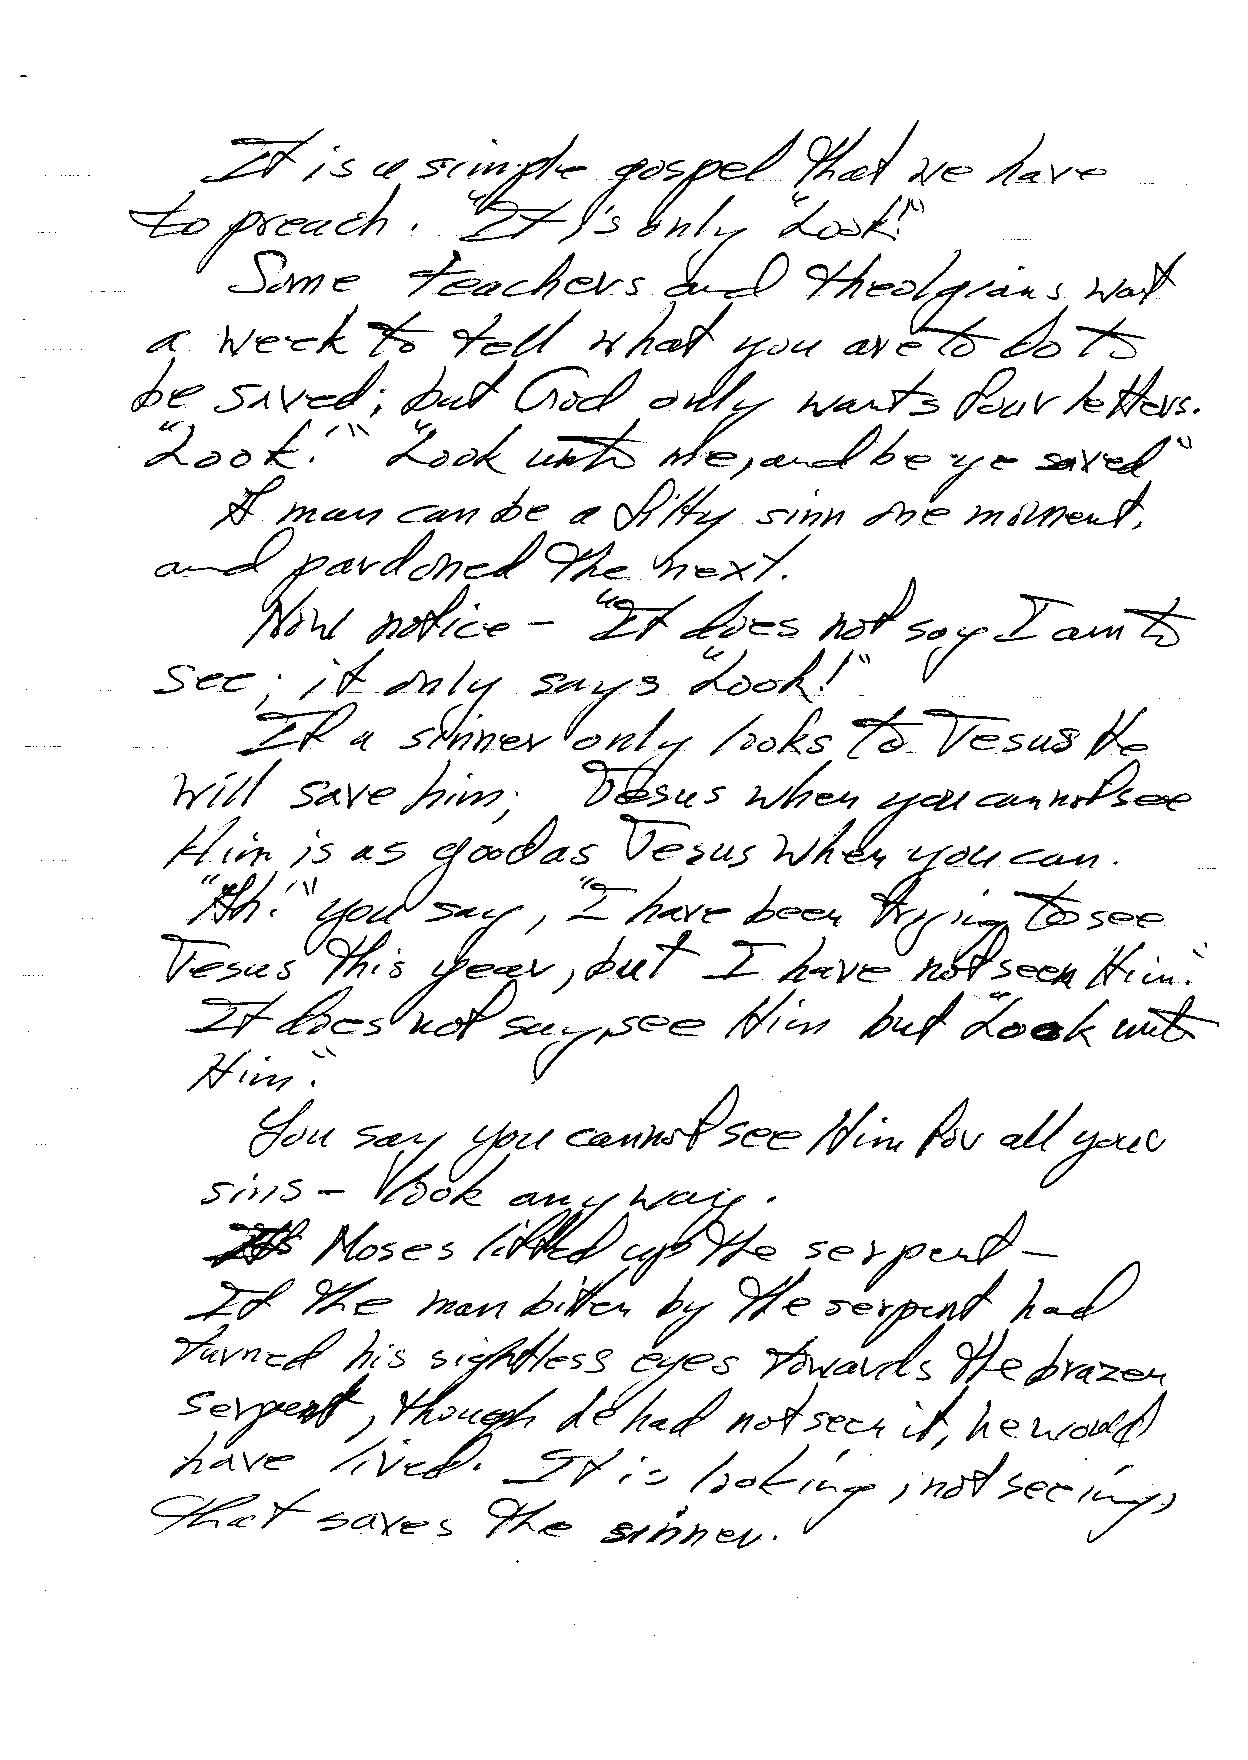 It is a simple gospel that we have
to preach. "It is only "Look!"
Some teachers and theolgians wait
a week to tell what you are to do to
be saved; but God only wants four letters.
"Look!" "Look unto me, and be ye saved"
A man can be a filty sinn one moment,
and pardoned the next.
Now notice - "It does not say I am to
see; it only says "Look!"
If a sinner only looks to Jesus He
will save him; Jesus when you cannot see
Him is as good as Jesus when you can.
"Ah!" you say, "I have been trying to see
Jesus this year, but I have not seen Him."
It does not say, see Him but "Look unto
Him".
You say you cannot see Him for all your
sins - look any way.
Moses lifted up the serpent -
If the man bitten by the serpent had
turned his sightless eyes towards the brazen
serpent, though he had not seen it, he would
have lived. It is looking, not seeing,
that saves the sinner.